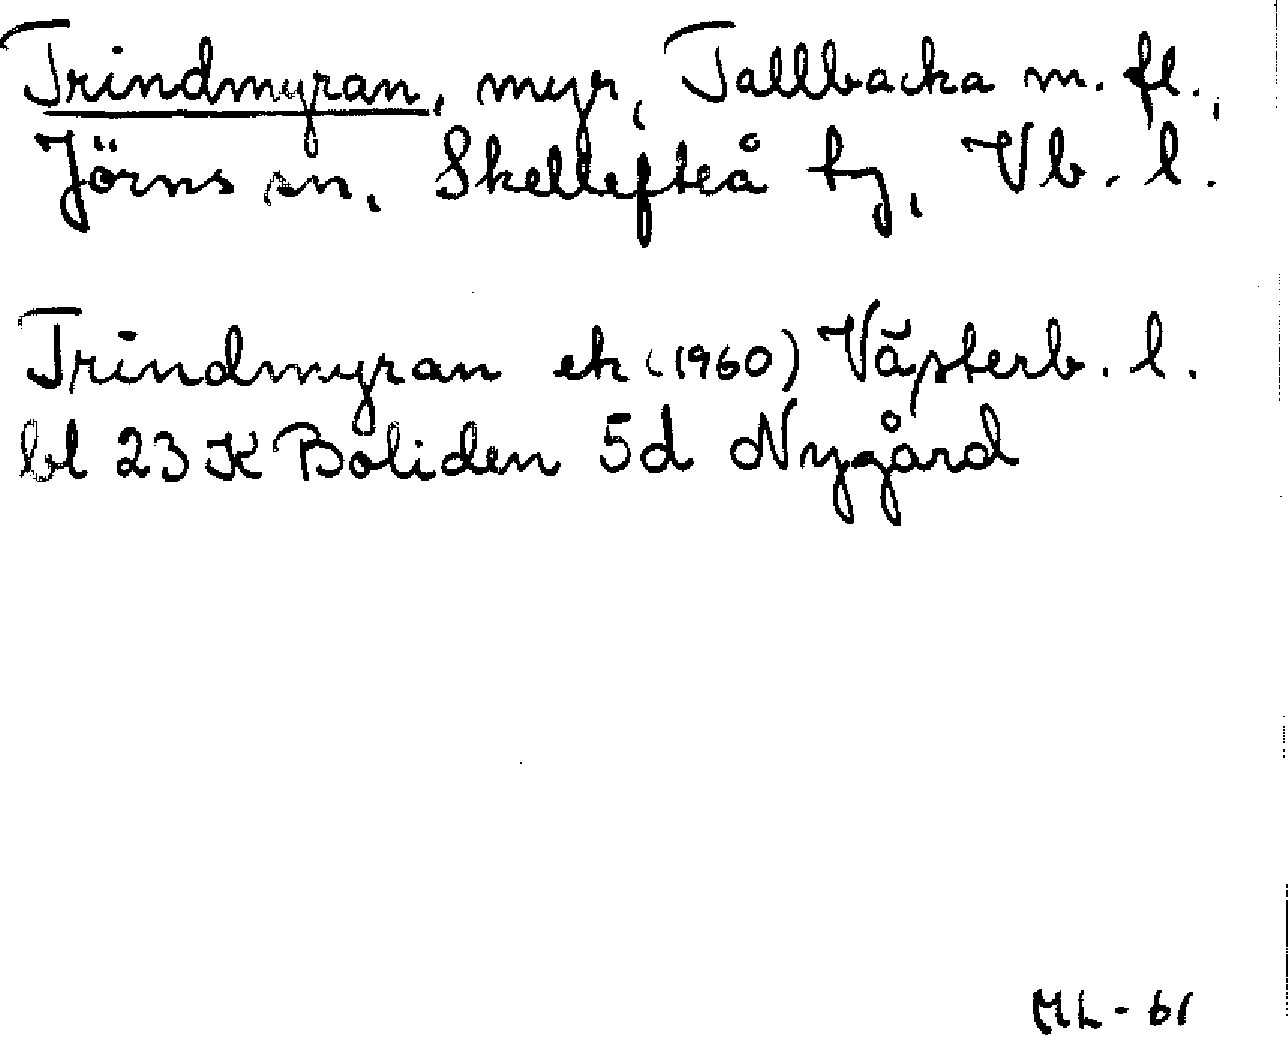 Trindmyran, myr, Tallbacka m. fl.,
Jörns sn, Skellefteå tg, Vb. l.
Trindmyran ek (1960) Västerb. l.
bl 23 K Boliden 5d Nygård
ML - 61